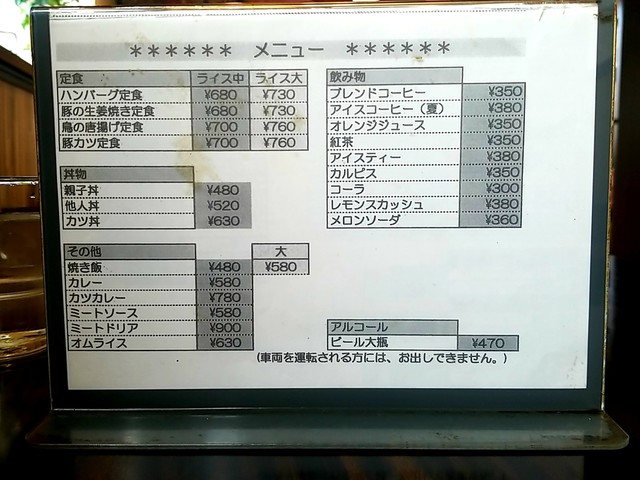 ****** メニュー ******
定食 ライス中 ライス大
ハンバーグ定食 ¥680 ¥730
豚の生姜焼き定食 ¥680 ¥730
鳥の唐揚げ定食 ¥700 ¥760
豚カツ定食 ¥700 ¥760
丼物
親子丼 ¥480
他人丼 ¥520
カツ丼 ¥630
その他 大
焼き飯 ¥480 ¥580
カレー ¥580
カツカレー ¥780
ミートソース ¥580
ミートドリア ¥900
オムライス ¥630
飲み物
ブレンドコーヒー ¥350
アイスコーヒー（夏） ¥380
オレンジジュース ¥350
紅茶 ¥350
アイスティー ¥380
カルピス ¥350
コーラ ¥300
レモンスカッシュ ¥380
メロンソーダ ¥360
アルコール
ビール大瓶 ¥470
（車両を運転される方には、お出しできません。）